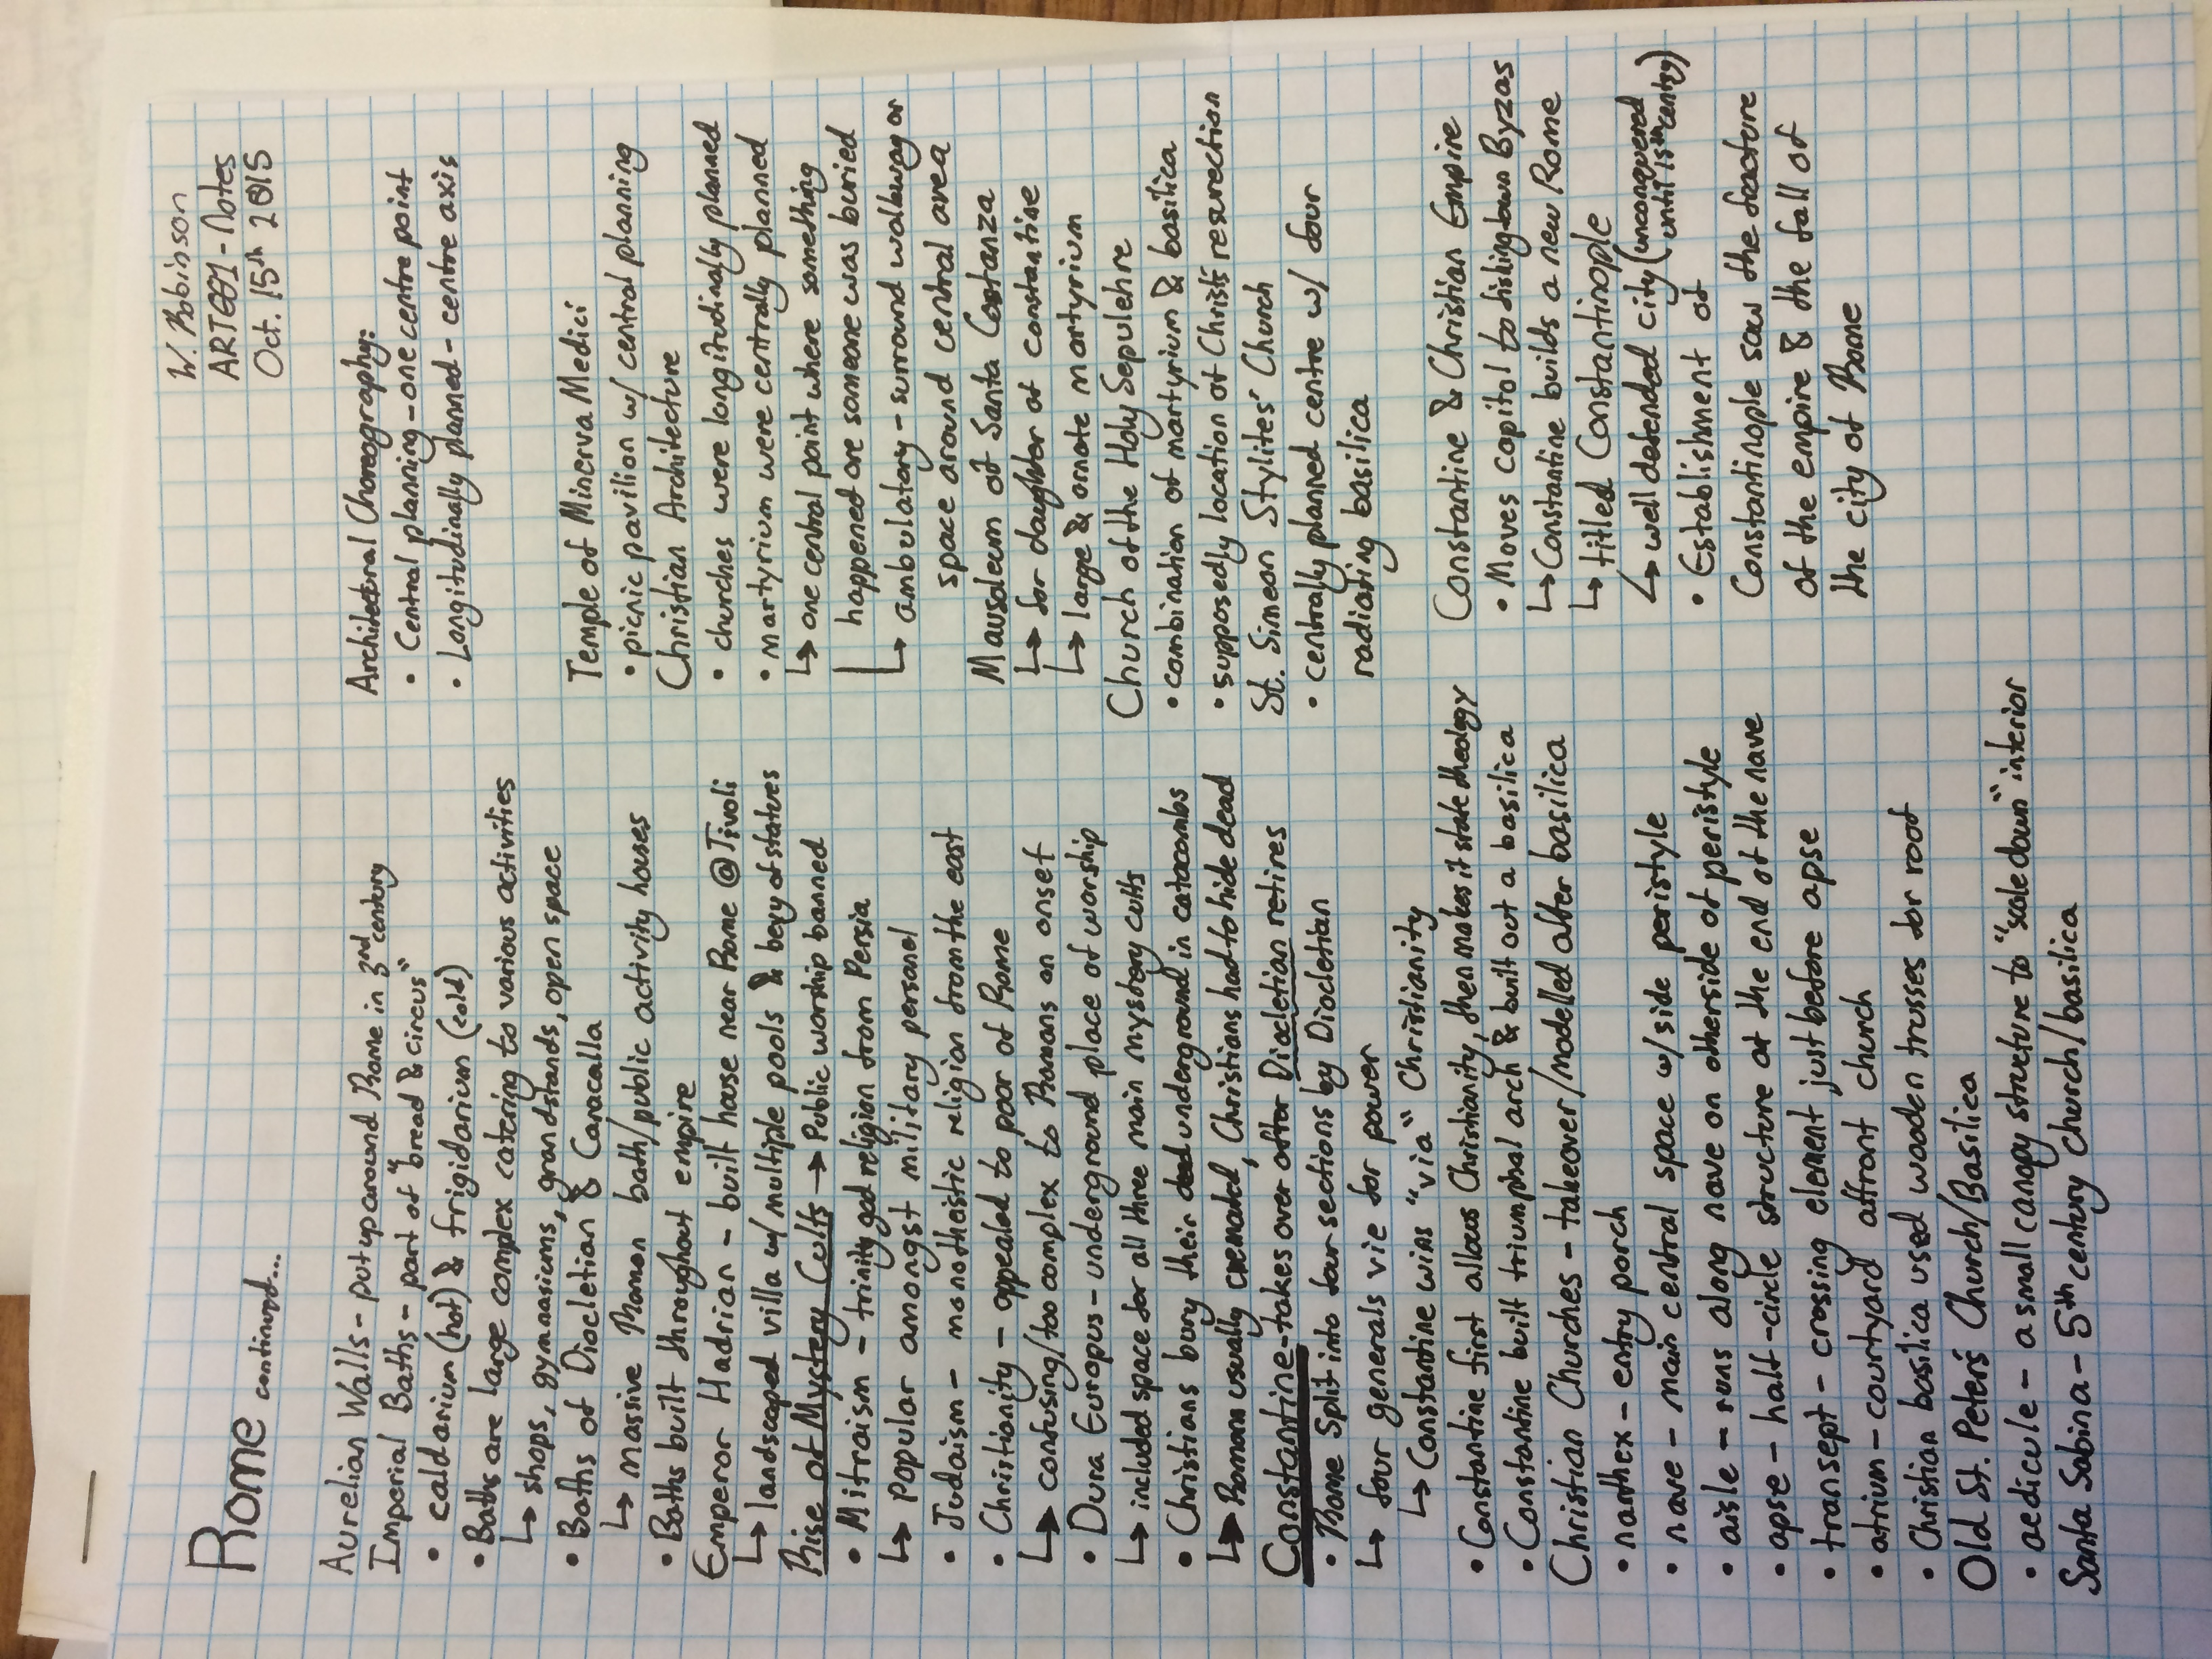 W. Robinson
ARTG001 - Notes
Oct. 15th 2015
Rome continued...
Aurelian Walls - put up around Rome in 3rd century
Imperial Baths - part of "bread & circus"
• caldarium (hot) & frigidarium (cold)
• Baths are large complex catering to various activities
↳ shops, gymnasiums, grandstands, open space
• Baths of Diocletian & Caracalla
↳ massive Roman bath/public activity houses
• Baths built throughout empire
Emperor Hadrian - built house near Rome @ Tivoli
↳ landscaped villa w/ multiple pools & bevy of statues
Rise of Mystery Cults → Public worship banned
• Mitraism - trinity god religion from Persia
↳ Popular amongst military personel
• Judaism - monotheistic religion from the east
• Christianity - appealed to poor of Rome
↳ confusing/too complex to Romans on onset
• Dura Europus - underground place of worship
↳ included space for all three main mystery cults
• Christians bury their dead underground in catacombs
↳ Romans usually cremated, Christians had to hide dead
Constantine - takes over after Diocletian retires
• Rome Split into four sections by Diocletian
↳ four generals vie for power
↳ Constantine wins "via" Christianity
• Constantine first allows Christianity, then makes it state theology
• Constantine built triumphal arch & built out a basilica
Christian Churches - takeover/modelled after basilica
• narthex - entry porch
• nave - main central space w/ side peristyle
• aisle - runs along nave on otherside of peristyle
• apse - half-circle structure at the end of the nave
• transept - crossing element just before apse
• atrium - courtyard affront church
• Christian basilica used wooden trusses for roof
Old St. Peter's Church/Basilica
• aedicule - a small canopy structure to "scale down" interior
Santa Sabina - 5th century church/basilica
Architectural Choreography:
• Central planning - one centre point
• Longitudinally planned - centre axis
Temple of Minerva Medici
• picnic pavilion w/ central planning
Christian Architecture
• churches were longitudinally planned
• martyrium were centrally planned
↳ one central point where something
happened or someone was buried
↳ ambulatory - surround walkway or
space around central area
Mausoleum of Santa Costanza
↳ for daughter of constantine
↳ large & ornate martyrium
Church of the Holy Sepulchre
• combination of martyrium & basilica
• supposedly location of Christ's resurrection
St. Simeon Stylites' Church
• centrally planned centre w/ four
radiating basilica
Constantine & Christian Empire
• Moves capitol to fishing town Byzas
↳ Constantine builds a new Rome
↳ titled Constantinople
↳ well defended city (unconquered
until 15th centry)
• Establishment of
Constantinople saw the fracture
of the empire & the fall of
the city of Rome